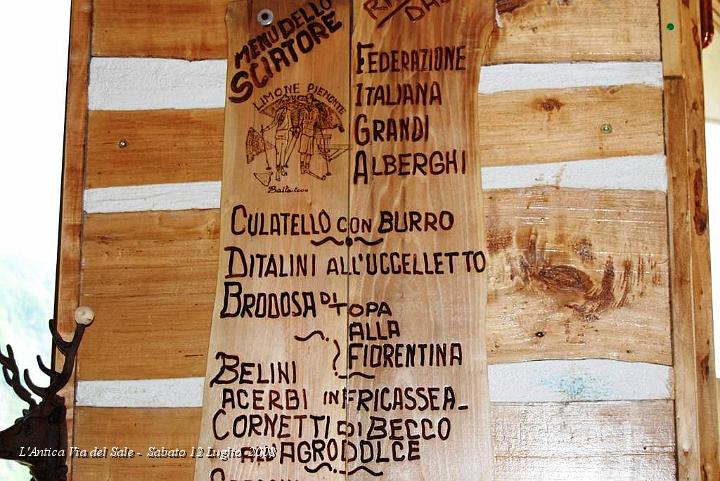 MENU DELLO
SCIATORE
LIMONE PIEMONTE
FEDERAZIONE
ITALIANA
GRANDI
ALBERGHI
CULATELLO CON BURRO
DITALINI ALL'UCCELLETTO
BRODOSA DI TOPA
ALLA
FIORENTINA
BELINI
ACERBI IN FRICASSEA
CORNETTI DI BECCO
AGRODOLCE
L'Antica Via del Sale - Sabato 12 Luglio 2008